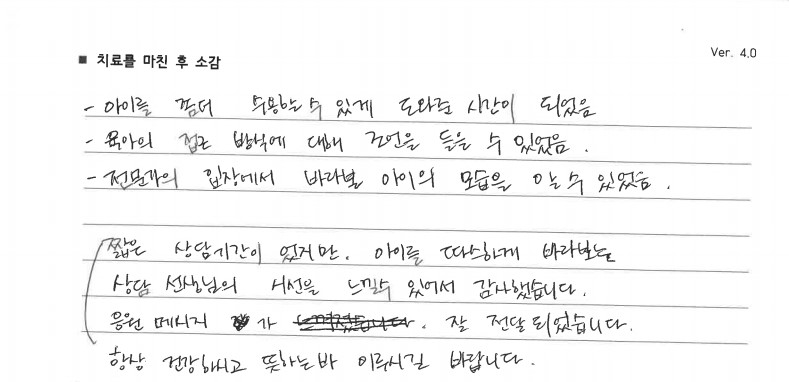 ■ 치료를 마친 후 소감
Ver. 4.0
- 아이를 좀더 수용할 수 있게 도와준 시간이 되었음
- 육아의 접근 방식에 대해 조언을 들을 수 있었음.
- 전문가의 입장에서 바라볼 아이의 모습을 아는 수 있었음.
짧은 상담기간이 었지만. 아이를 따스하게 바라보는
상담 선생님의 시선을 느낄수 있어서 감사했습니다.
응원 메시지 가 느껴졌습니다. 잘 전달되었습니다.
항상 건강하시고 뜻하는바 이루시길 바랍니다.